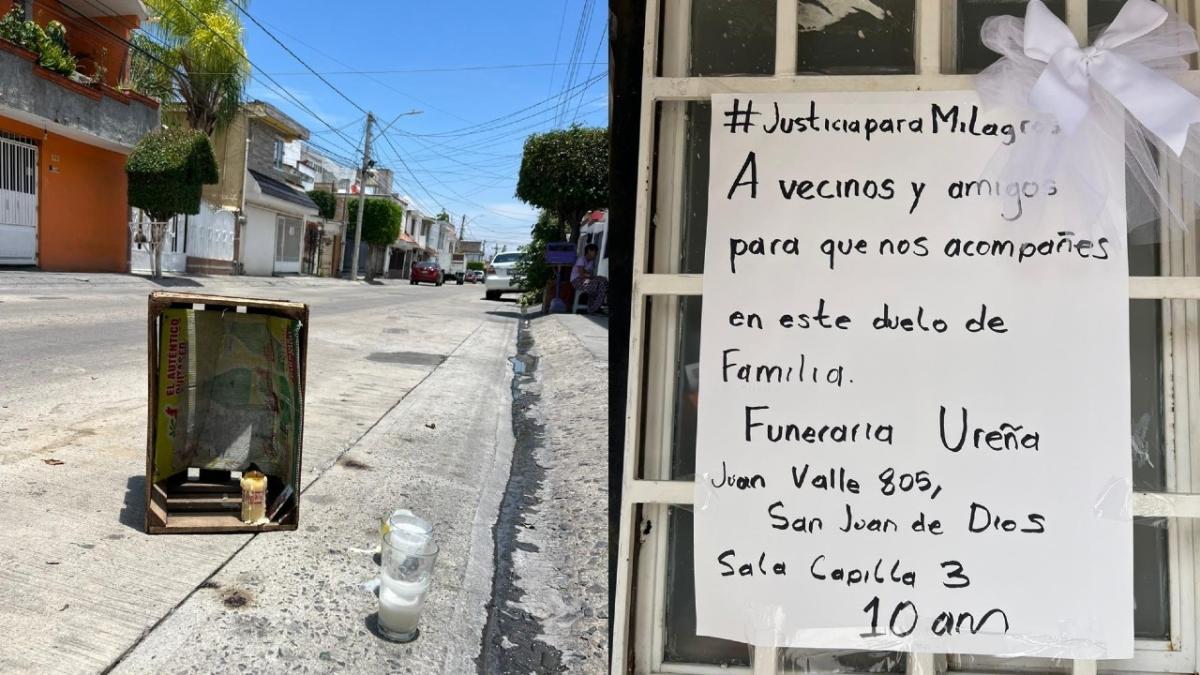 EL AUTÉNTICO
#JusticiaparaMilagros
A vecinos y amigos
para que nos acompañes
en este duelo de
Familia.
Funeraria Ureña
Juan Valle 805,
San Juan de Dios
Sala Capilla 3
10 am